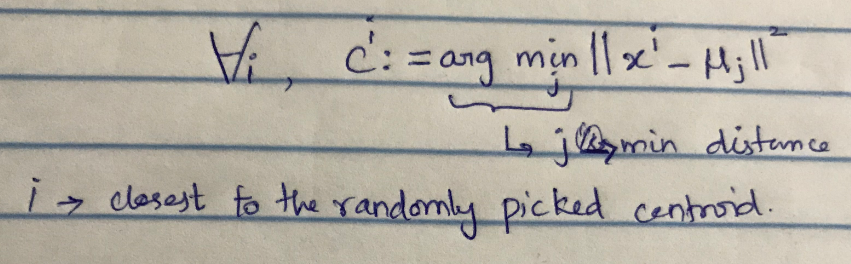 ∀i, cⁱ := arg min_j ||xⁱ - μ_j||²
↳ j → min distance
i → closest to the randomly picked centroid.